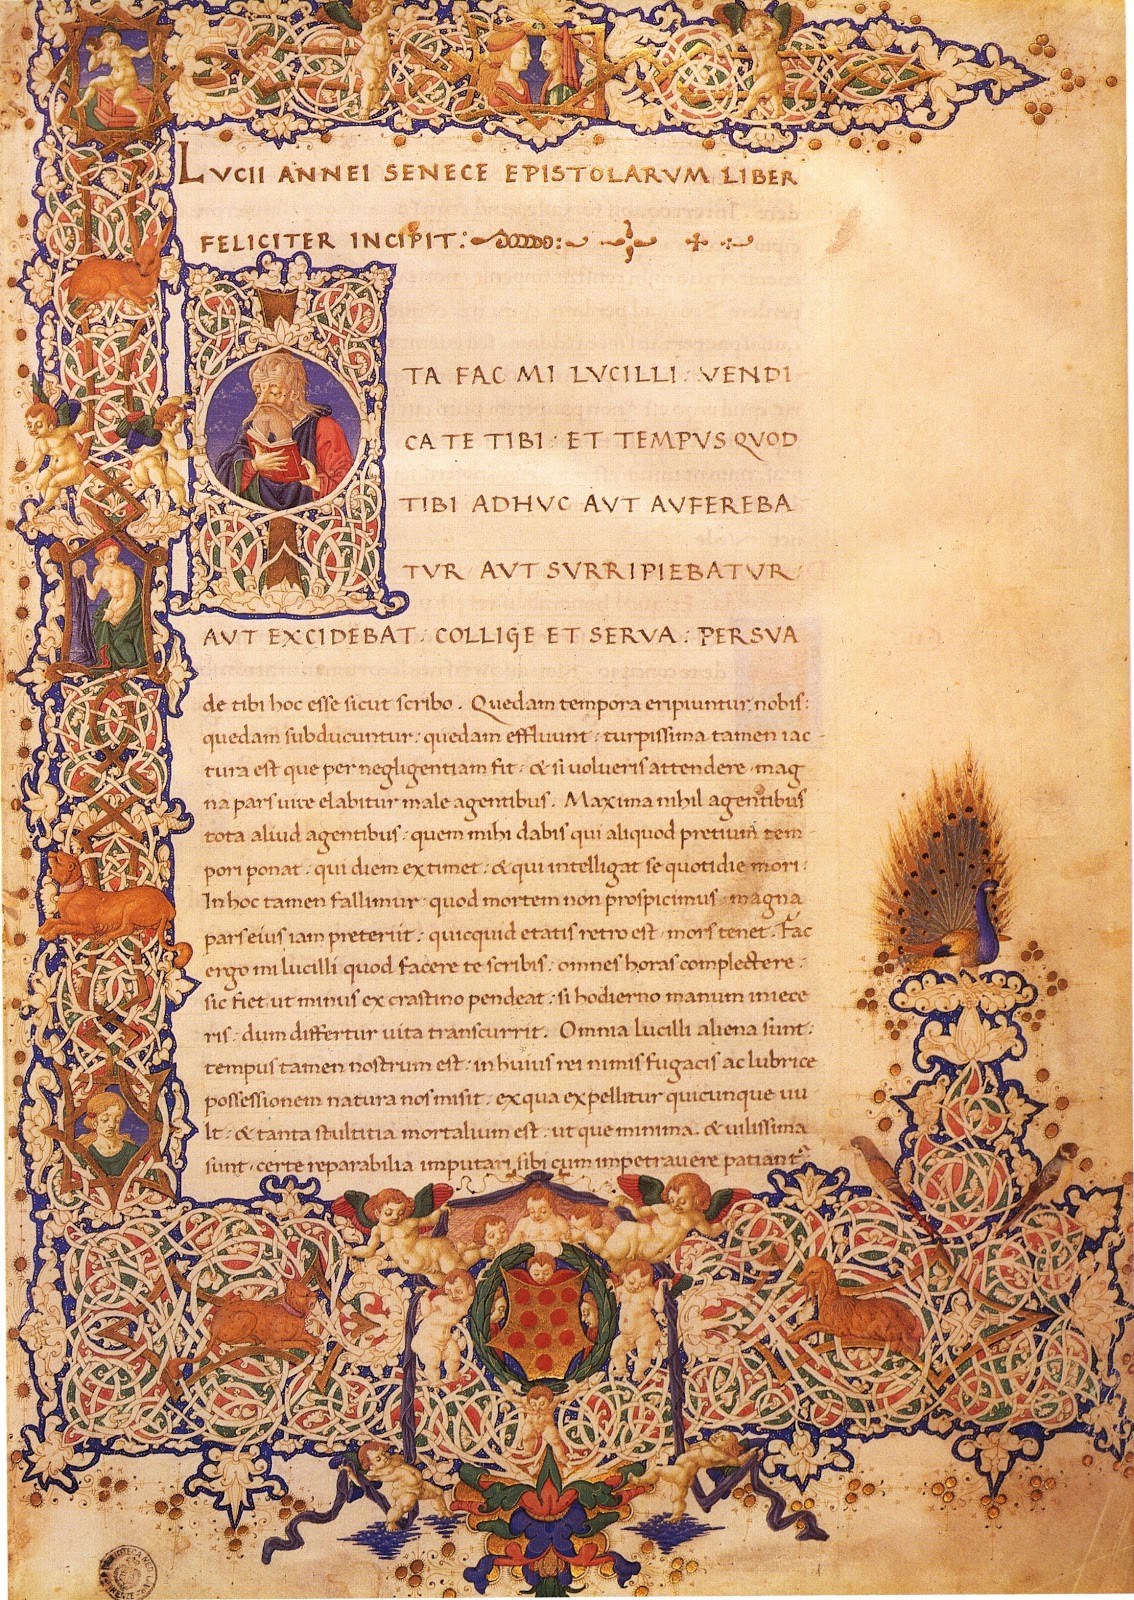 LVCII ANNEI SENECE EPISTOLARVM LIBER
FELICITER INCIPIT:
ITA FAC MI LVCILLI: VENDI
CA TE TIBI: ET TEMPVS QVOD
TIBI ADHVC AVT AVFEREBA
TVR AVT SVRRIPIEBATVR:
AVT EXCIDEBAT: COLLIGE ET SERVA: PERSVA
de tibi hoc esse sicut scribo. Quedam tempora eripiuntur nobis:
quedam subducuntur: quedam effluunt: turpissima tamen iac
tura est que per negligentiam fit: & si volueris attendere mag
na pars vite elabitur male agentibus. Maxima nihil agentibus
tota aliud agentibus: quem mihi dabis qui aliquod pretium tem
pori ponat: qui diem extimet: & qui intelligat se quotidie mori:
In hoc tamen fallimur quod mortem non prospicimus: magna
pars eius iam preteriit: quicquid etatis retro est mors tenet. Fac
ergo mi lucilli quod facere te scribis: omnes horas complectere:
sic fiet ut minus ex crastino pendeat: si hodierno manum iniece
ris: dum differtur vita transcurrit. Omnia lucilli aliena sunt:
tempus tamen nostrum est: in huius rei nimis fugacis ac lubrice
possessionem natura nos misit: ex qua expellitur quicunque uu
lt: & tanta stultitia mortalium est: ut que minima & uilissima
sunt: certe reparabilia imputari sibi cum impetrauere patiant~